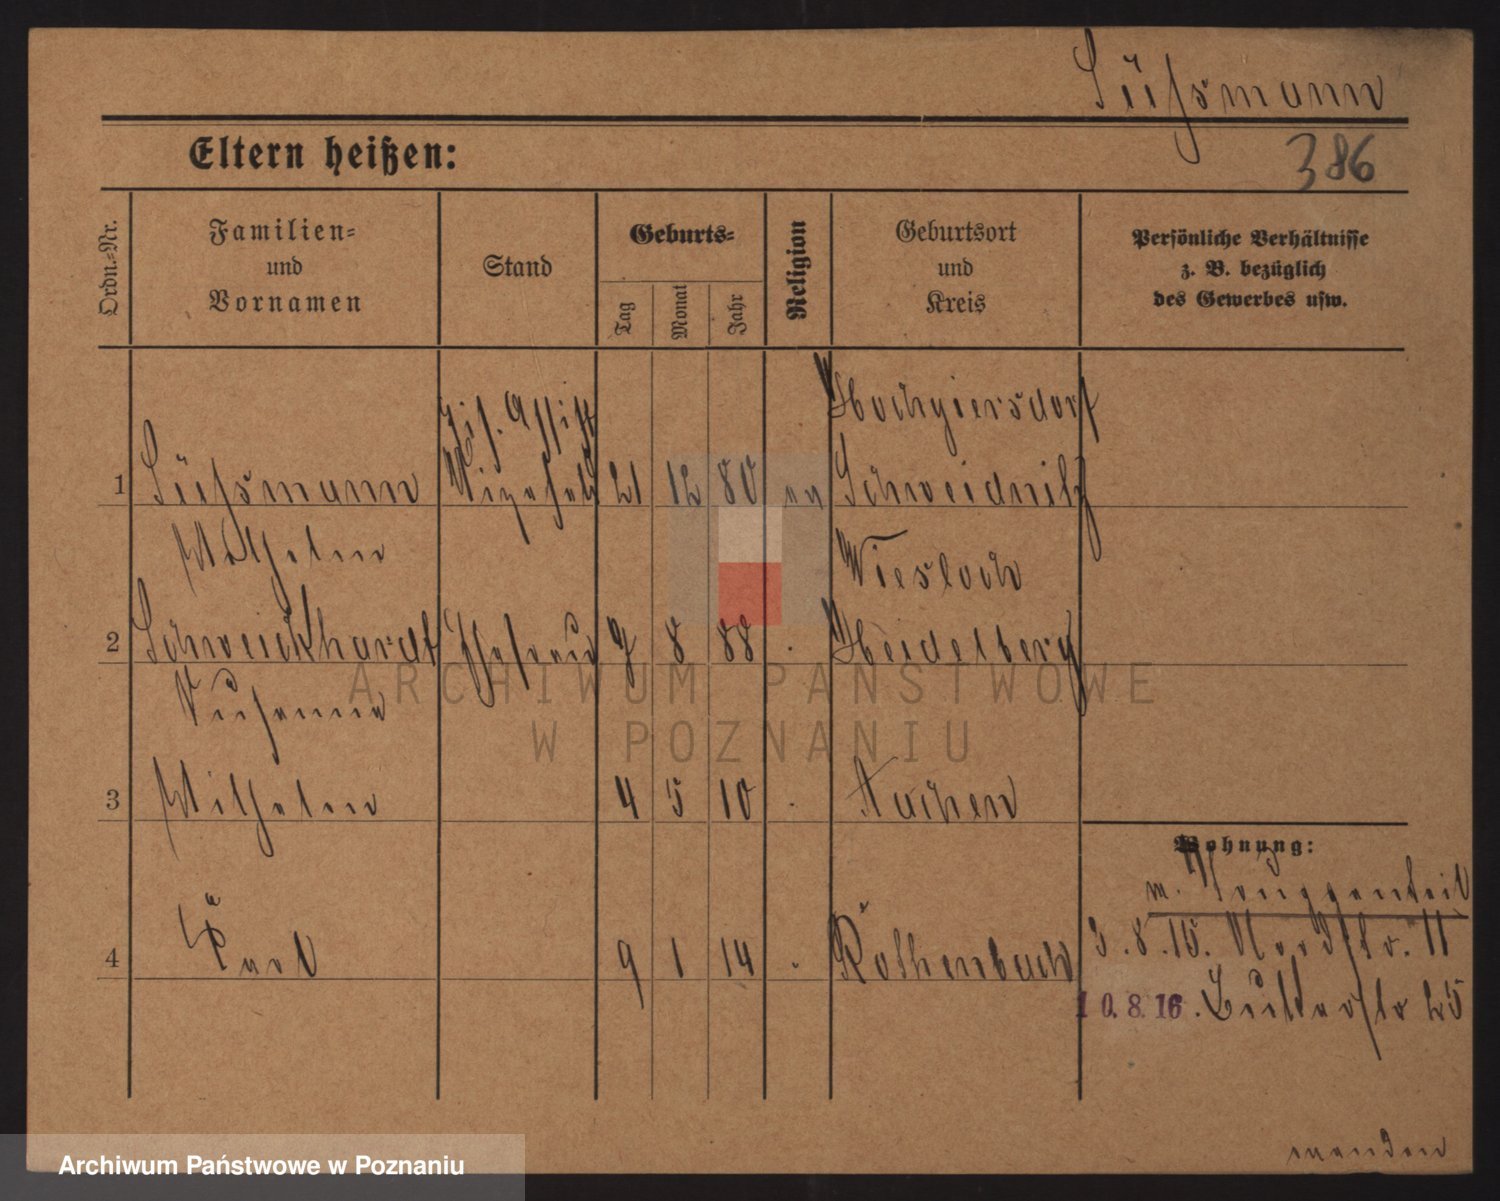 Süßmann
386
Eltern heißen:
Ordn.-Nr.
Familien-
und
Vornamen
Stand
Geburts-
Tag
Monat
Jahr
Religion
Geburtsort
und
Kreis
Persönliche Verhältnisse
z. B. bezüglich
des Gewerbes usw.
Hochgiersdorf
1 Süßmann 21 12 80 ev Schweidnitz
Wilhelm Wiesloch
2 Schweickhardt Ehefrau 9 8 88 Heidelberg
Susanna
3 Wilhelm 4 5 10 Aachen
Wohnung:
4 Karl 9 1 14 Rothenbach
3.8.15. Nordstr. 11
10.8.16. 25
ARCHIWUM PAŃSTWOWE
W POZNANIU
Archiwum Państwowe w Poznaniu